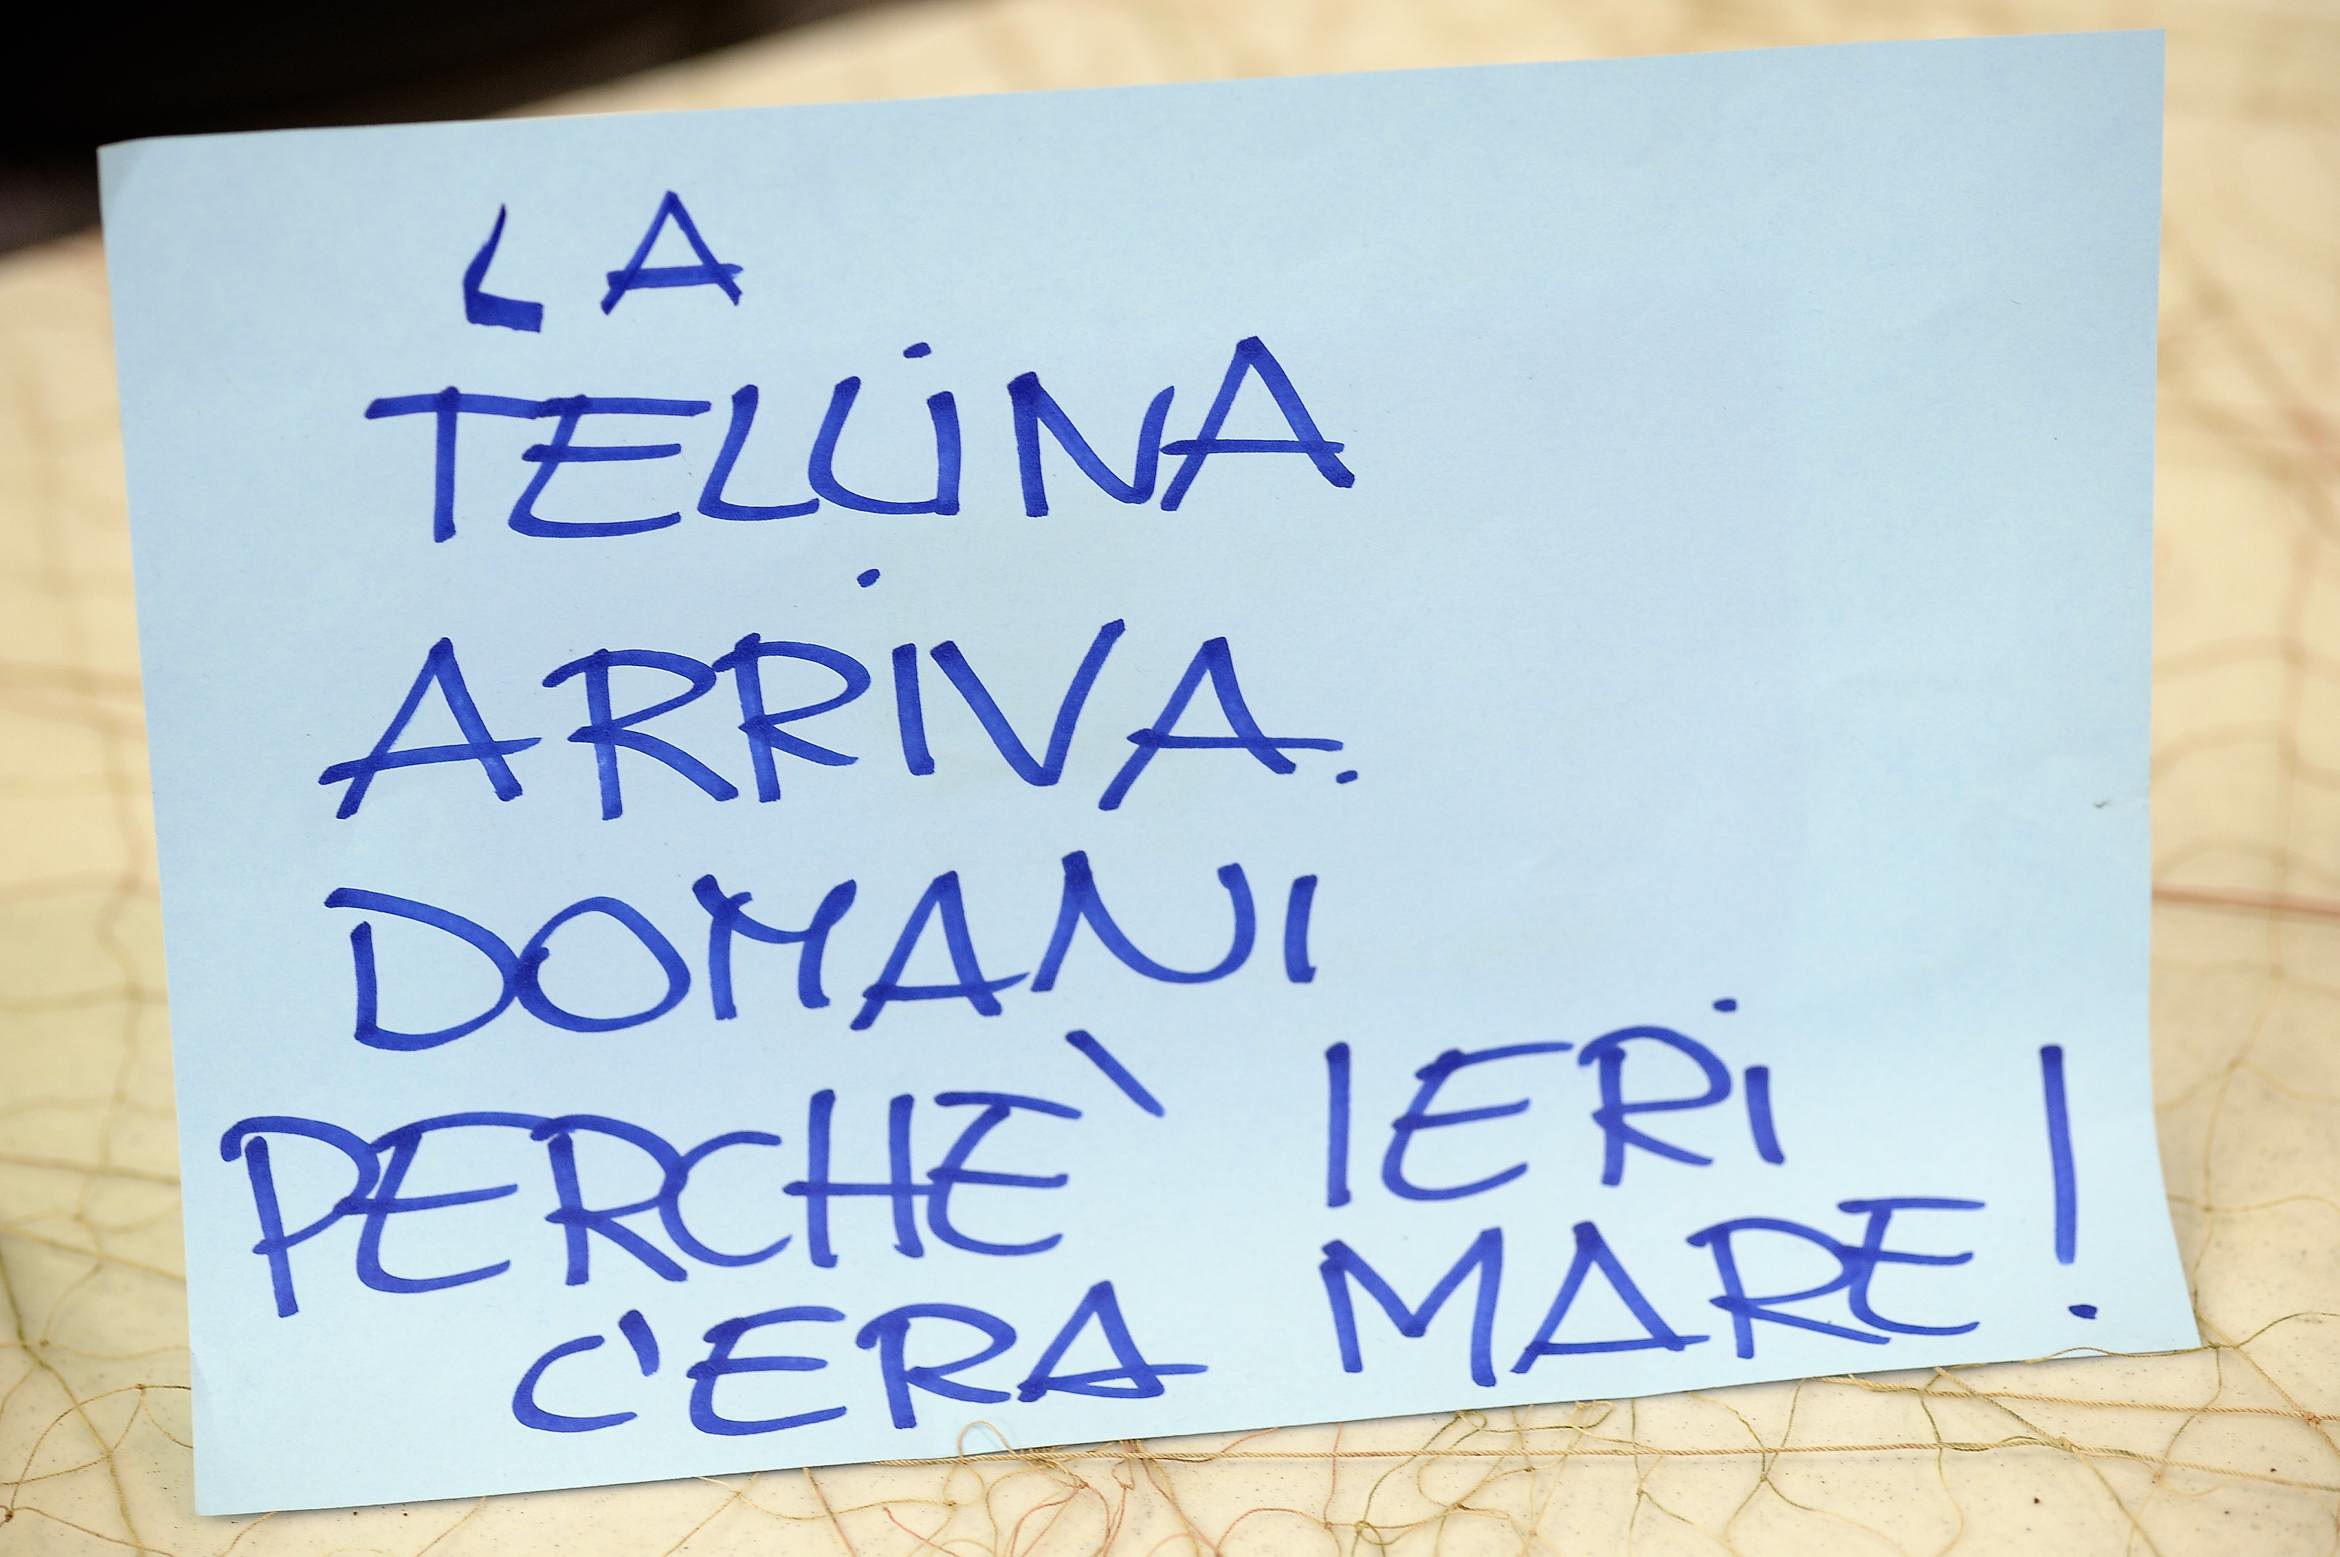 LA
TELLINA
ARRIVA.
DOMANI
PERCHÈ IERI
C'ERA MARE!